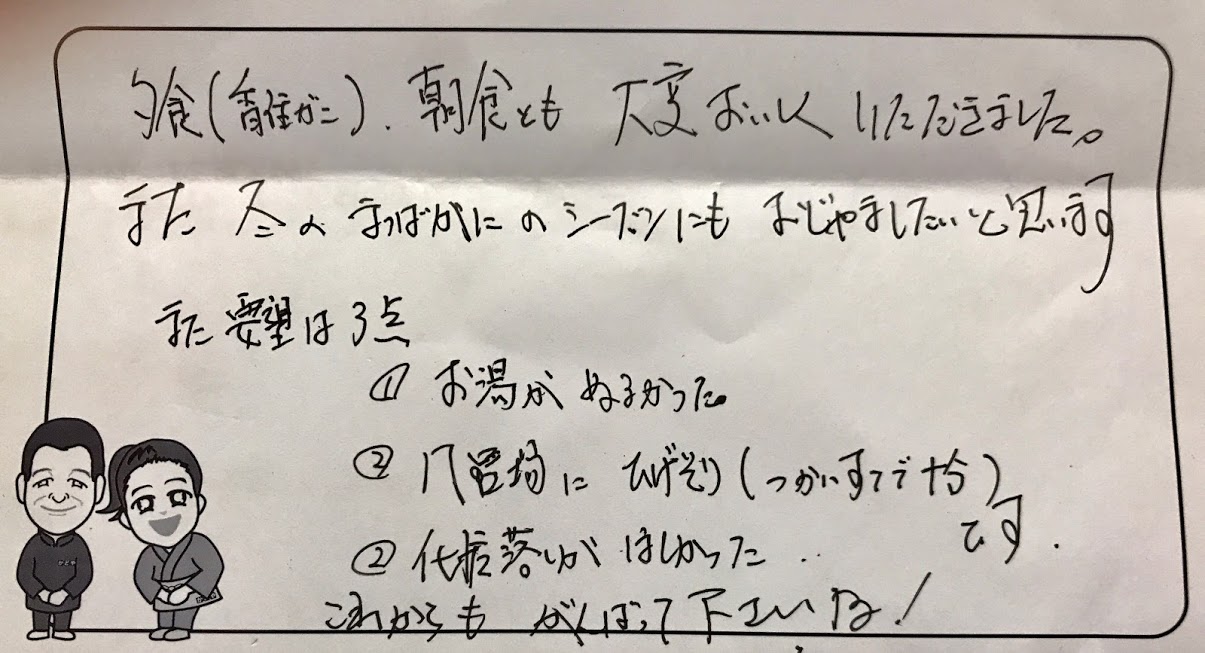 夕食(香住ガニ)、朝食とも 大変おいしくいただきました。
また 冬の まつばがにの シーズンにも おじゃましたいと思います
また 要望は3点
① お湯が ぬるかった。
② 風呂場に ひげそり(つかいすてで十分)
です.
② 化粧落しが ほしかった..
これからも がんばって下さいね!